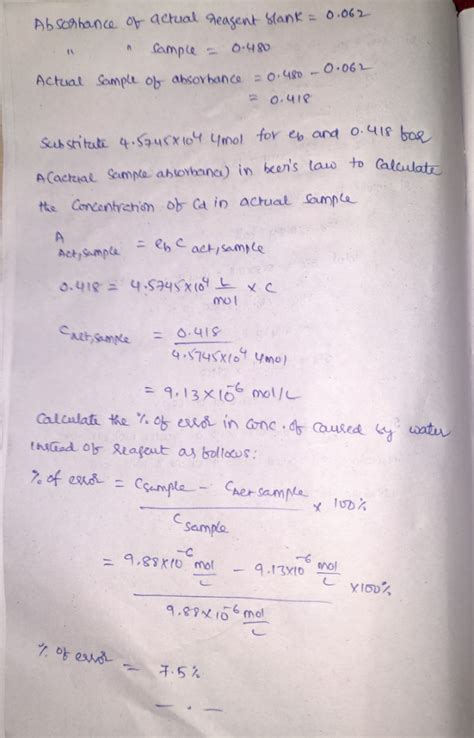 Absorbance of actual reagent blank = 0.062
" " sample = 0.480
Actual sample of absorbance = 0.480 - 0.062
= 0.418
Substitute 4.5745×10⁴ L/mol for eb and 0.418 for
A(actual sample absorbance) in beer's law to calculate
the concentration of Cd in actual sample
A Act,sample = eb C act,sample
0.418 = 4.5745×10⁴ L/mol × C
C act,sample = 0.418 / 4.5745×10⁴ L/mol
= 9.13×10⁻⁶ mol/L
Calculate the % of error in conc. of caused by water
instead of reagent as follows:
% of error = Csample - C act sample / C sample × 100%
= 9.88×10⁻⁶ mol/L - 9.13×10⁻⁶ mol/L / 9.88×10⁻⁶ mol/L ×100%
% of error = 7.5%